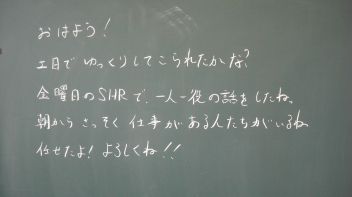 おはよう!
土日でゆっくりしてこられたかな?
金曜日のSHRで、一人一役の話をしたね。
朝からさっそく仕事がある人たちがいるね
任せたよ!よろしくね!!